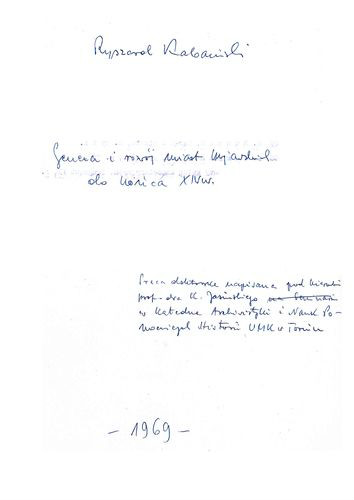 Ryszard Kabaciński
Geneza i rozwój miast kujawskich
do końca XIV w.
Praca doktorska napisana pod kierunk.
prof. dra K. Jasińskiego
w Katedrze Archiwistyki i Nauk Po-
mocniczych Historii UMK w Toruniu
- 1969 -